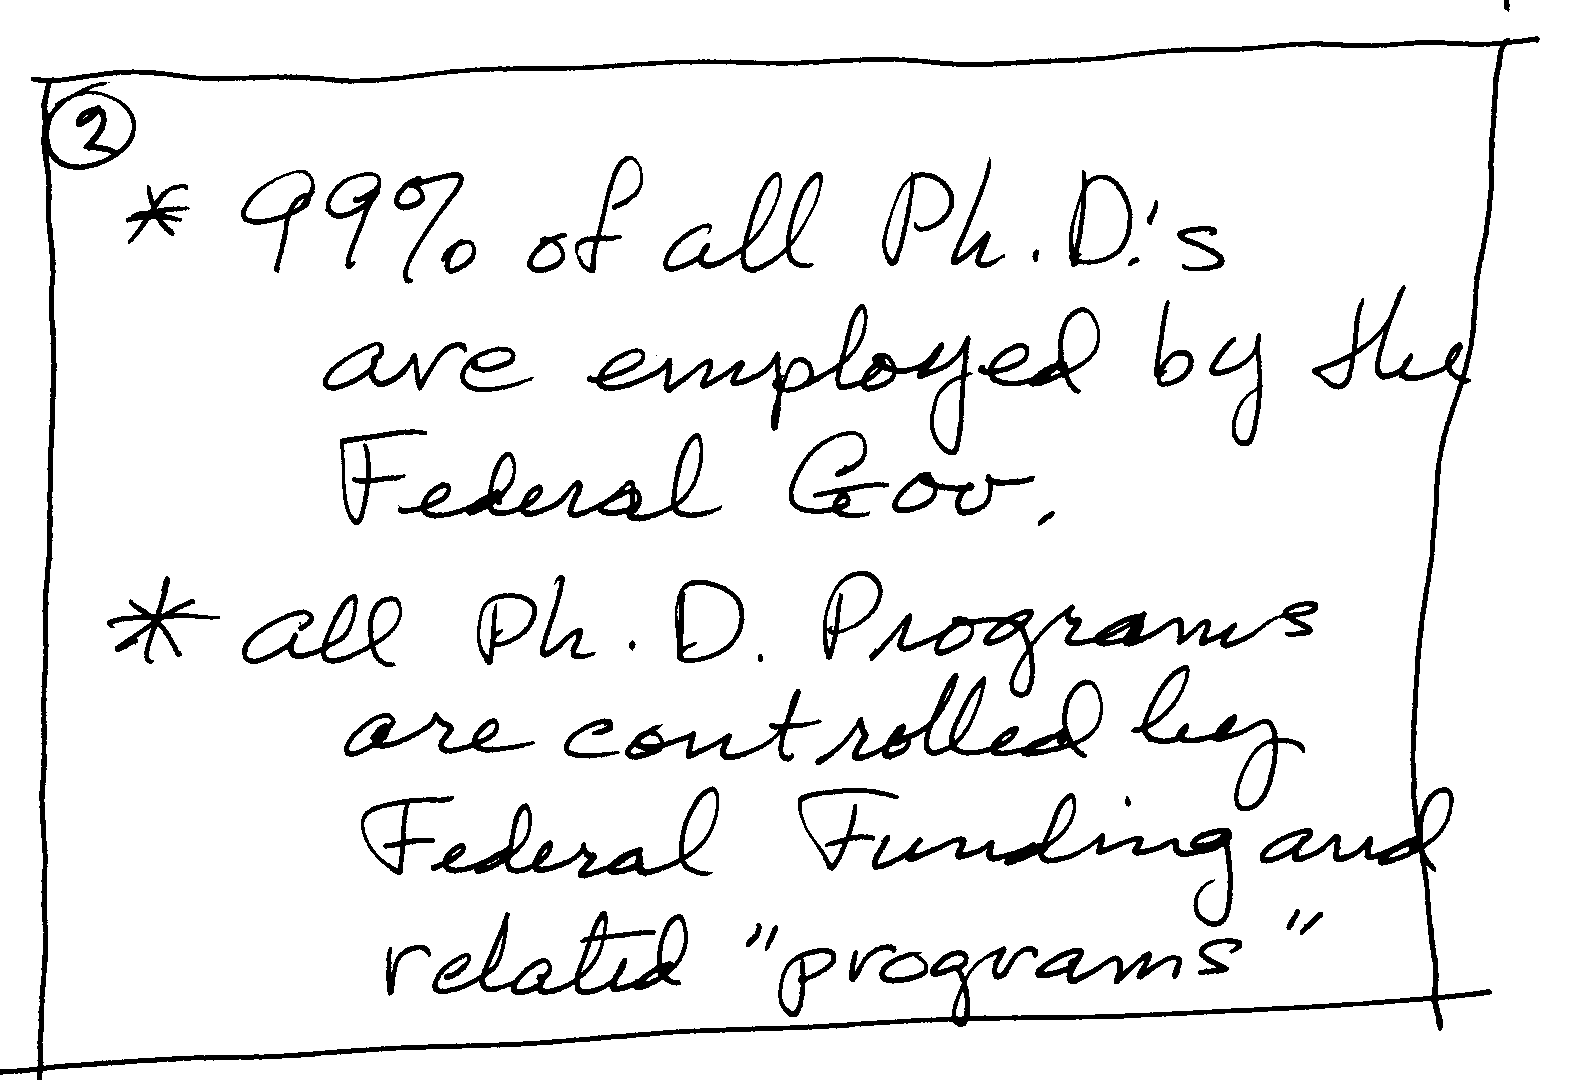 2
* 99% of all Ph.D.'s
are employed by the
Federal Gov.
* all Ph.D. Programs
are controlled by
Federal Funding and
related "programs"